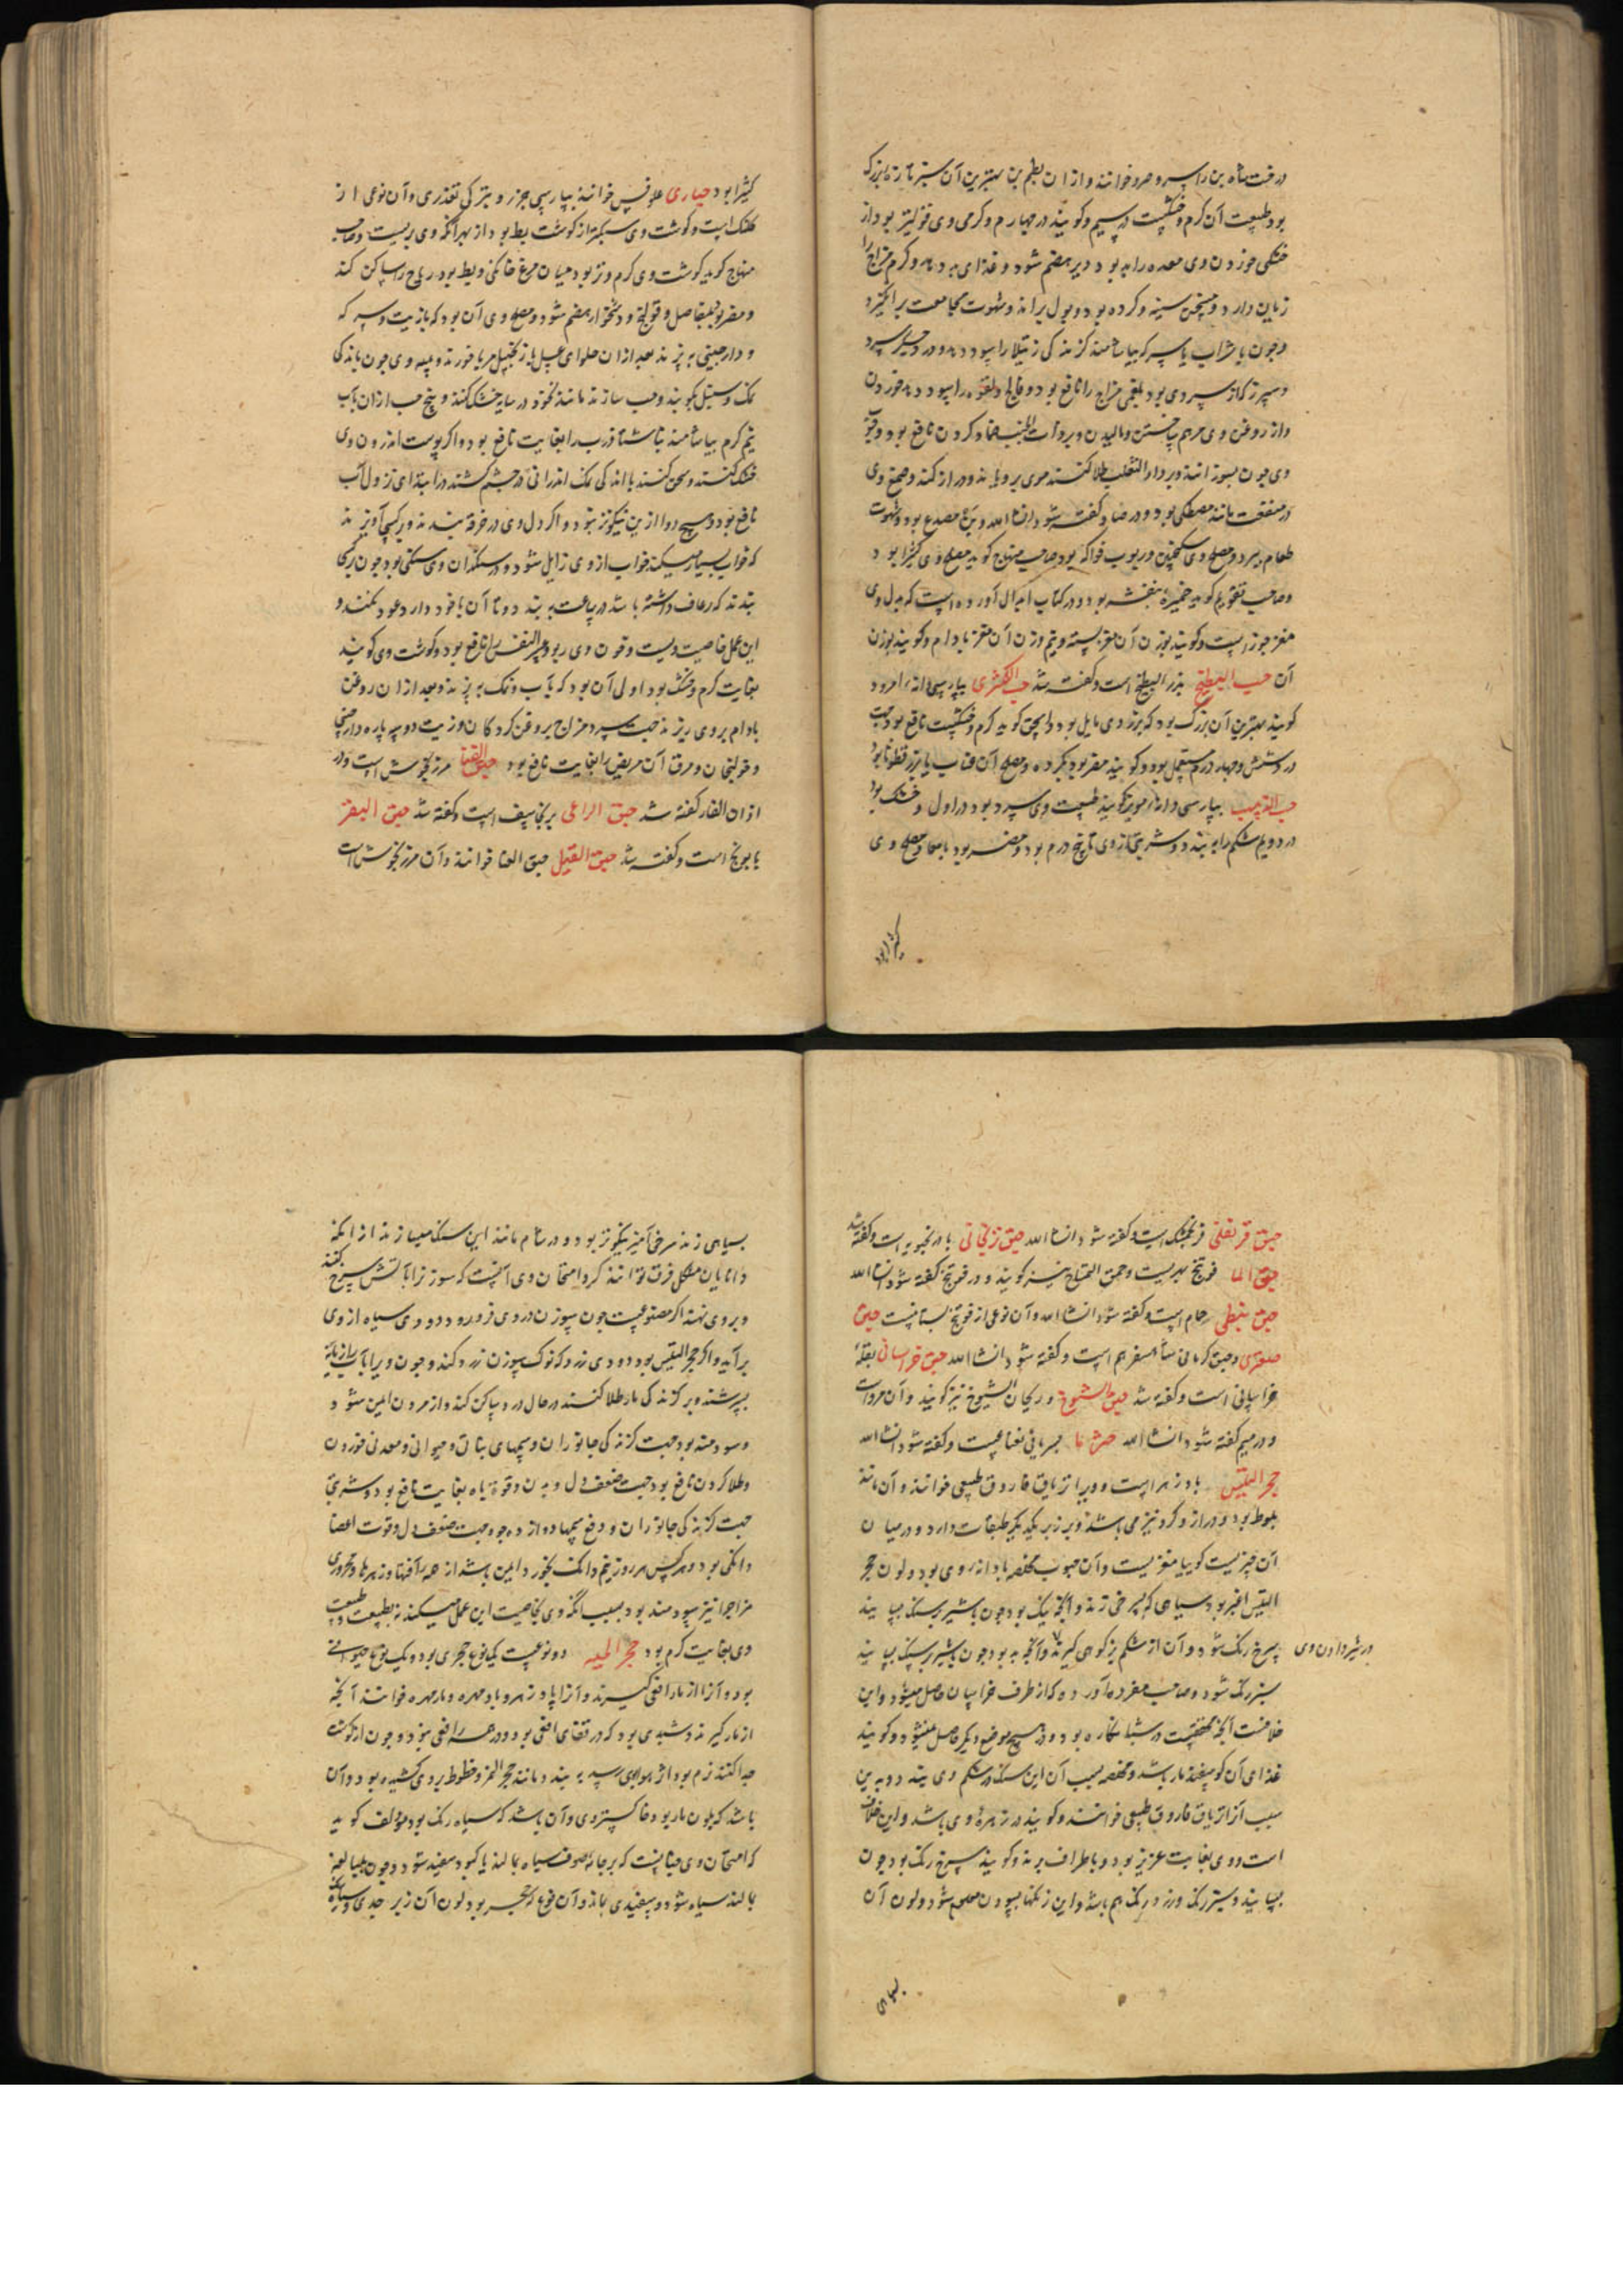 درخت شاه بن را سرو خوانند و از ان بطم بن بهترین آن سبز تازه بزرک
بود طبیعت آن کرم و خشکست در سیم و کویند در چهارم و کرمی وی فزونتر بود از
خشکی خوردن وی معده را بد بود و دیر هضم شود و غذای بد دهد و کرم مزاج را
زیان دارد و مسخن سینه و کرده بود و بول براند و شهوت مجامعت برانکیزد
و چون با شراب یا سرکه بیاشامند کزندکی رتیلا را سود دهد و درد جکر سرد
و سپرز که از سردی بود بلغمی مزاج را نافع بود و فالج و لقوه را سود دهد خوردن
و از روغن وی مرهم ساختن و مالیدن و بر ذات الجنب ضماد کردن نافع بود و
وی چون بسوزانند و بر داء الثعلب طلا کنند موی برویاند و دراز کند و صمغ وی
در منفعت مانند مصطکی بود و در ضاد کفته شود انشا الله و بن مصدع بود و شهوت
طعام ببرد و مصلح وی سکنجبین و ربوب فواکه بود صاحب منهاج کوید مصلح وی کثیرا بود
و صاحب تقویم کوید خمیره بنفشه بود و در کتاب ابدال آورده است که بدل وی
مغز جوز است و کویند بوزن آن مغز پسته و نیم وزن آن مغز بادام و کویند بوزن
آن حب البطیخ بزر البطیخ است و کفته شد حب الکمثری بپارسی دانه امرود
کویند بهترین آن بزرک بود که بزردی مایل بود و اسحق کوید کرم و خشکست نافع بود جهت
درد شش و چهار درم مستعمل بود و کویند مضر بود بکرده و مصلح آن عناب یا بزر قطونا بود
حب الزبیب بپارسی دانه مویز کویند طبیعت وی سرد بود در اول و خشک بود
در دویم شکم را ببندد و شربتی از وی تا پنج درم بود و مضر بود بامعا و مصلح وی
کثیرا بود
کثیرا بود حباری علوفس خوانند بپارسی جرز و بترکی تغدری و آن نوعی از
کلنک است و کوشت وی سبکتر از کوشت بط بود از بهر آنکه وی بریست و صاحب
منهاج کوید کوشت وی کرم و تر بود میان مرغ خانکی و بط بود ریاح را ساکن کند
و مضر بود بمفاصل و قولنج و دشخوار هضم شود و مصلح وی آن بود که با زیت و سرکه
و دارچینی بپزند بعد از ان حلوای عسل با زنجبیل مربا خورند و پیه وی چون با اندکی
نمک و سنبل بکوبند و حب سازند مانند نخود و در سایه خشک کنند و پنج حب از ان با آب
نیم کرم بیاشامند ناشتا ذرب را بغایت نافع بود و اکر پوست اندرون وی
خشک کنند و سحق کنند با اندکی نمک اندرانی در چشم کشند در ابتدای نزول آب
نافع بود و هیچ دوا ازین نیکوتر نبود و اکر دل وی در خرقه بندند و بر کسی آویزند
که خواب بسیار میکند خواب از وی زایل شود و در سنکدان وی سنکی بود چون بر کسی
بندند که رعاف داشته باشد در ساعت ببندد و تا آن با خود دارد عود نکند و
این عمل خاصیت ویست و خون وی ربو و عسر النفس را نافع بود و کوشت وی کویند
بغایت کرم و خشک بود اولی آن بود که بآب و نمک بپزند و بعد از ان روغن
بادام بروی ریزند جهت سرد مزاج بروغن کردکان و زیت و دو سه پاره دارچینی
و خولنجان و مرق آن مریض را بغایت نافع بود حبق القنا مرزنجوش است و در
اذان الفار کفته شد حبق الراعی برنجاسف است و کفته شد حبق البقر
بابونج است و کفته شد حبق الفیل حبق القنا خوانند و آن مرزنجوش است
حبق قرنفلی فرنجمشک است و کفته شود انشا الله حبق ترنجانی بادرنجبویه است و کفته شد
حبق الما فوتنج نهریست و حبق التمساح نیز کویند و در فوتنج کفته شود انشا الله
حبق نبطی حماحم است و کفته شود انشا الله و آن نوعی از فوتنج بستانیست حبق
صعتری و حبق کرمانی شاه سفرهم است و کفته شود انشا الله حبق خراسانی بقله
خراسانی است و کفته شد حبق الشیوخ و ریحان الشیوخ نیز کویند و آن مرو است
و در میم کفته شود انشا الله بسریانی نعناعیست و کفته شود انشا الله
حجر التیس پادزهر است و ویرا تریاق فاروق طبیعی خوانند و آن مانند
بلوط بود و دراز و کرد نیز می باشد و بر زبر یکدیکر طبقات دارد و در میان
آن چیزیست کویی مغزیست و آن چوب مخلصه یا دانه وی بود و لون حجر
التیس اغبر بود سیاهی که بسرخی زند و آنچه نیک بود چون با شیر بر سنک بسایند
بسرخ رنک شود و آن از شکم بز کوهی کیرند و آنچه بد بود چون با شیر بر سنک بسایند
در شیر دادن وی
سبز رنک شود و صاحب مفرده آورده که از طرف خراسان حاصل میشود و این
خلافست آنچه محققست در شبانکاره بود و در هیچ موضع دیکر حاصل نمیشود و کویند
غذای آن کوسفند مار باشد و مخلصه بسبب آن این سنک در شکم وی بندد و بدین
سبب آنرا تریاق فاروق طبیعی خوانند و کویند در زهره وی باشد و این خلاف
است و وی بغایت عزیز بود و باطراف برند و کویند سرخ رنک بود چون
بسایند و سبز رنک و زرد رنک هم باشد و این رنکها بسودن معلوم شود و لون آن
بسیاهی
بسیاهی زند سرخی آمیز نیکوتر بود و در شام مانند این سنک میسازند از آنکه
دانایان مشکل فرق توانند کرد و امتحان وی آنست که سوزنرا بآتش سرخ کنند
و بر وی نهند اکر مصنوعیست چون سوزن در وی فرو رود دودی سیاه از وی
برآید و اکر حجر التیس بود دودی زرد که نوک سوزن زرد کند و چون ویرا بآب رازیانه
بسرشند و بر کزندکی مار طلا کنند در حال درد ساکن کند و از مردن ایمن شود
و سودمند بود جهت کزندکی جانوران و سمهای نباتی و حیوانی و معدنی خوردن
و طلا کردن نافع بود جهت ضعف دل و بدن و قوة باه بغایت نافع بود و شربتی
جهت کزندکی جانوران و دفع سمها دوازده جو و جهت ضعف دل و قوت اعضا
دانکی بود و هر کس هر روز نیم دانک بخورد ایمن باشد از همه آفتها و زهرها و محروری
مزاجرا نیز سودمند بود بسبب آنکه وی بخاصیت این عمل میکند نه بطبیعت و طبیعت
وی بغایت کرم بود حجر الحیه دو نوعیست یک نوع حجری بود و یک نوع حیوانی
بود و آنرا از مار افعی کیرند و آنرا پادزهر و باد مهره و مار مهره خوانند آنچه
از مار کیرند و شبهی بود که در قفای افعی بود و در همه افعی نبود و چون از کوشت
جدا کنند نرم بود از هوا رسد ببندد مانند حجر الحمر و خطوط بر وی کشیده بود و آن
باشد که بلون مار بود خاکستری و آن باشد که سیاه رنک بود مؤلف کوید
که امتحان وی چنانست که بر جامه صوف سیاه بمالند یا کبود سفید شود و چون بمبالغه
بمالند سیاه شود و سفیدی بماند و آن نوع که حجر بود لون آن زبرجدی و سیاه رنک